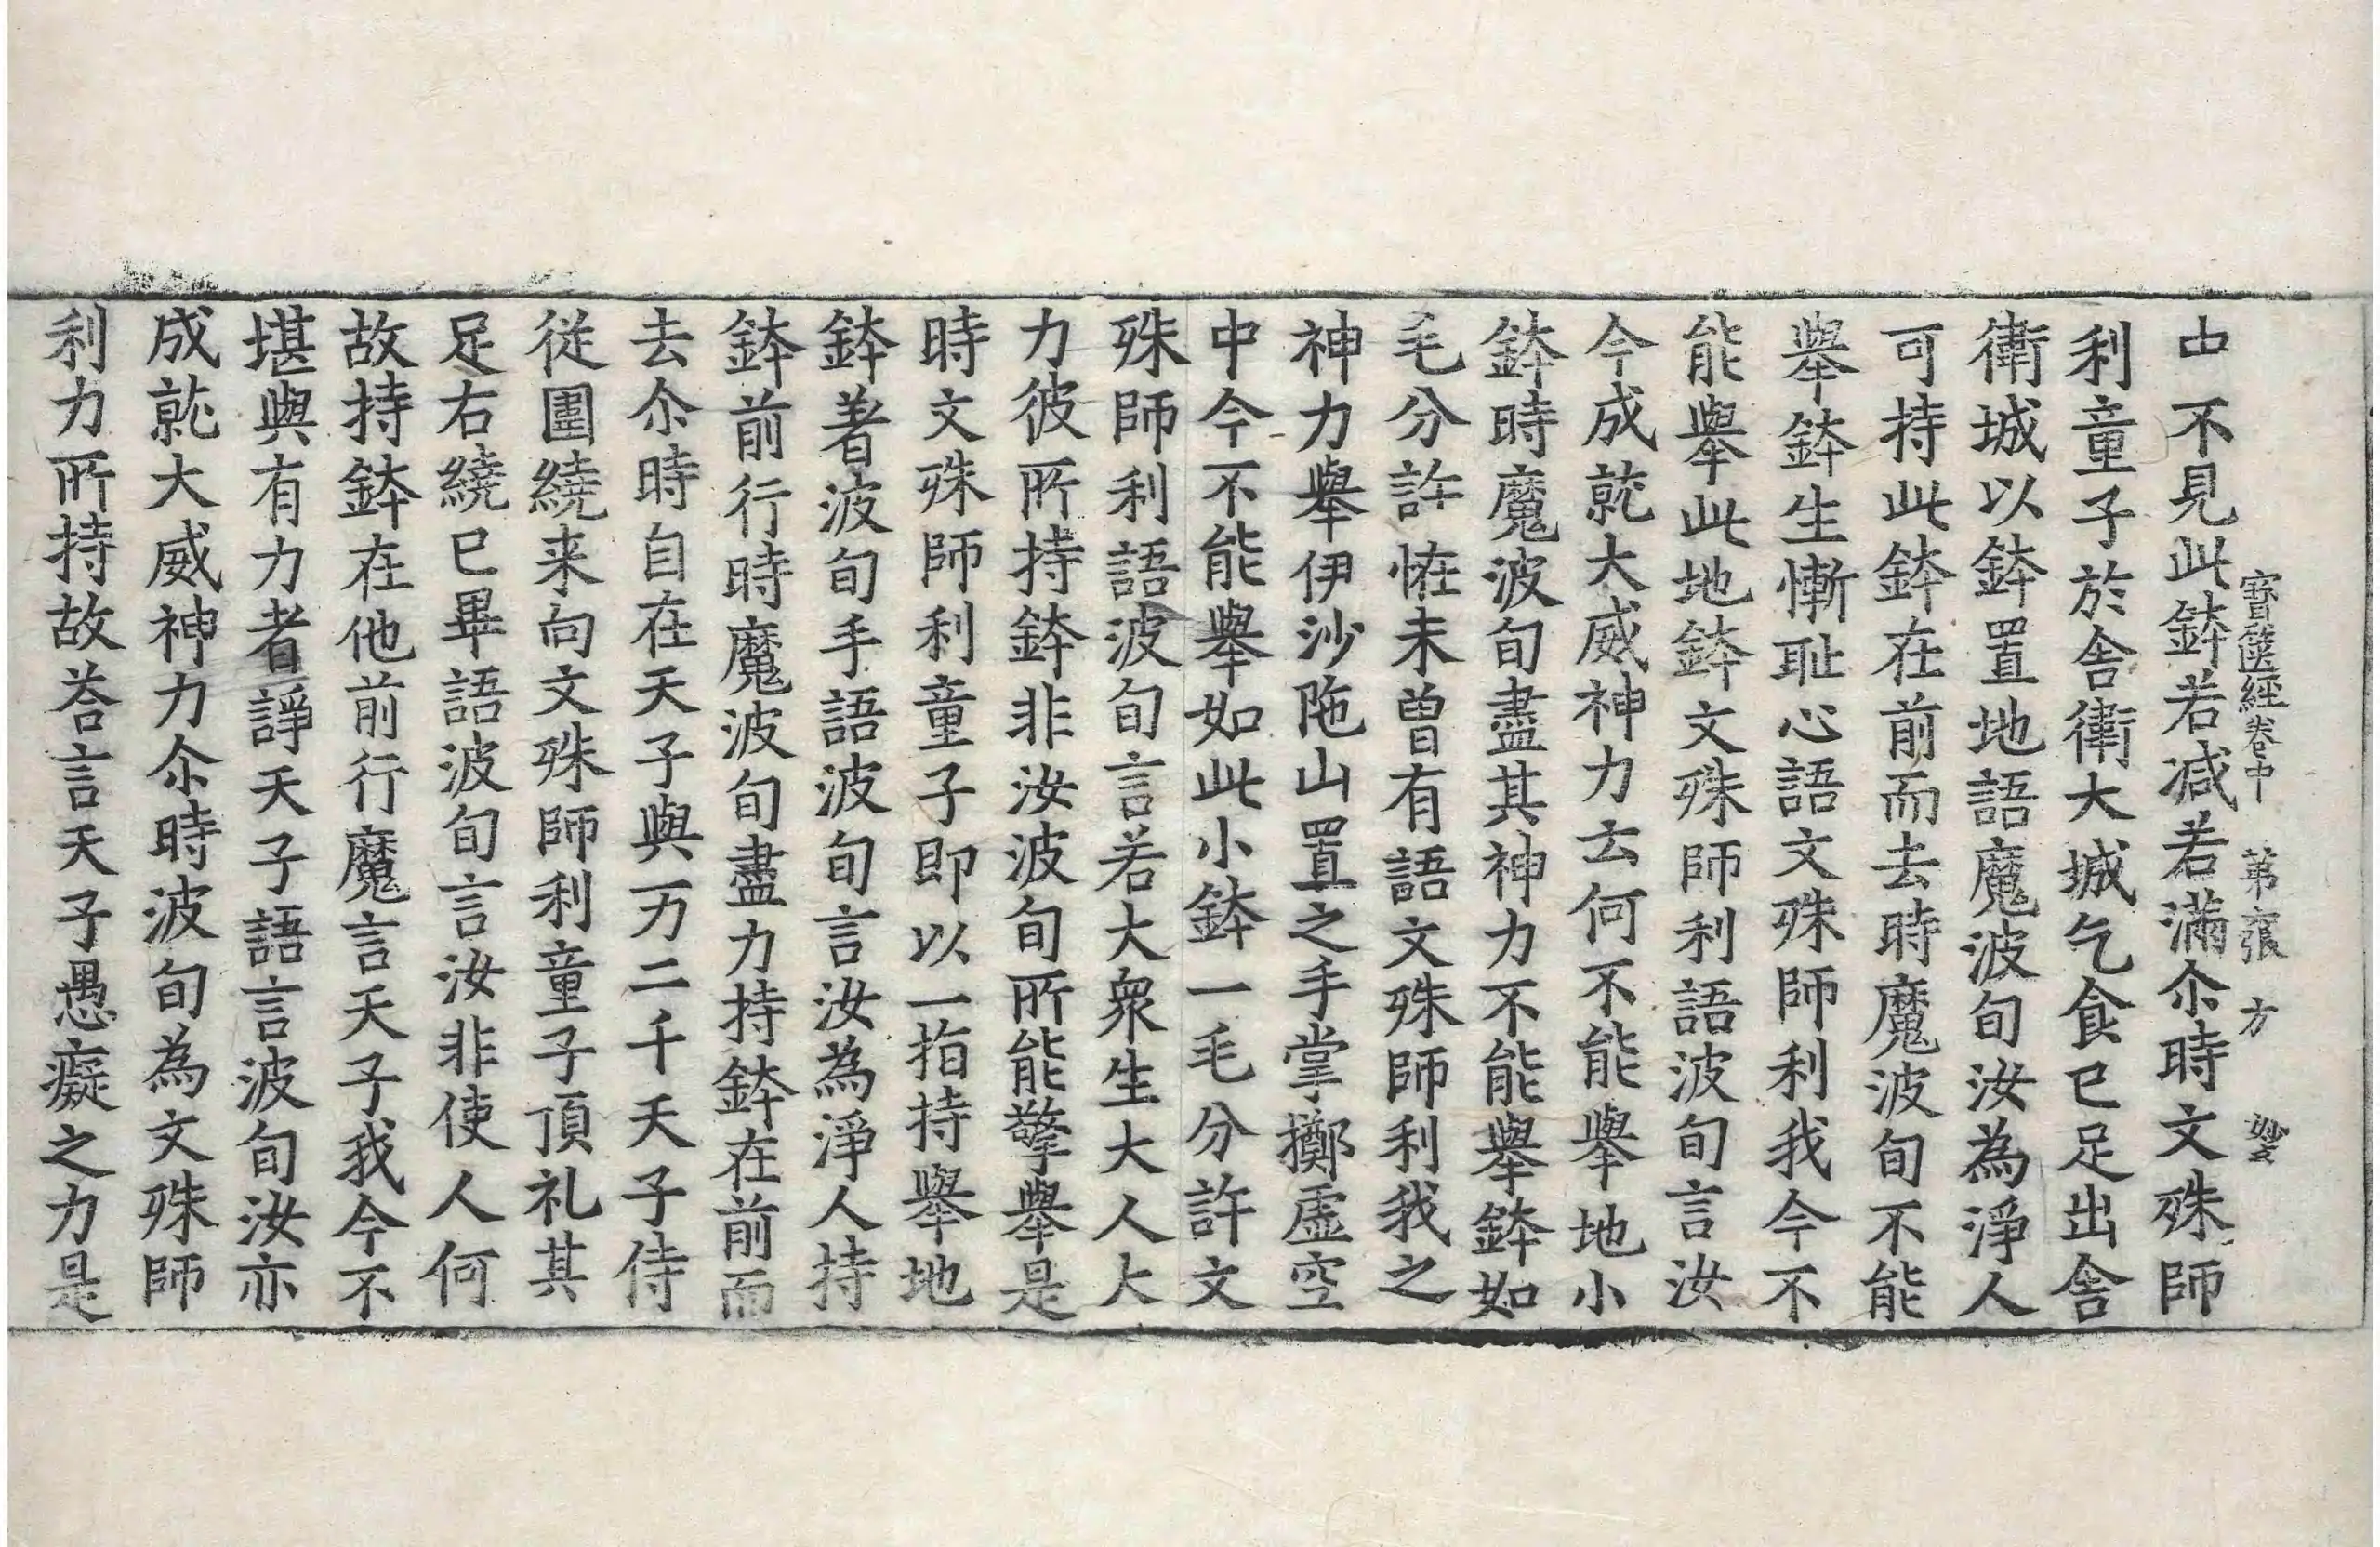 中不見此鉢若减若滿尒時文殊師
寳篋經卷中 苐 張 方
利童子於舍衛大城乞食已足出舍
衛城以鉢置地語魔波旬汝為淨人
可持此鉢在前而去時魔波旬不能
舉鉢生慚耻心語文殊師利我今不
能舉此地鉢文殊師利語波旬言汝
今成就大威神力云何不能舉地小
鉢時魔波旬盡其神力不能舉鉢如
毛分許恠未曽有語文殊師利我之
神力舉伊沙陁山置之手掌擲虛空
中今不能舉如此小鉢一毛分許文
殊師利語波旬言若大衆生大人大
力彼所持鉢非汝波旬所能擎舉是
時文殊師利童子即以一指持舉地
鉢著波旬手語波旬言汝為淨人持
鉢前行時魔波旬盡力持鉢在前而
去尒時自在天子與万二千天子侍
從圍繞来向文殊師利童子頂礼其
足右繞已畢語波旬言汝非使人何
故持鉢在他前行魔言天子我今不
堪與有力者諍天子語言波旬汝亦
成就大威神力尒時波旬為文殊師
利力所持故荅言天子愚癡之力是